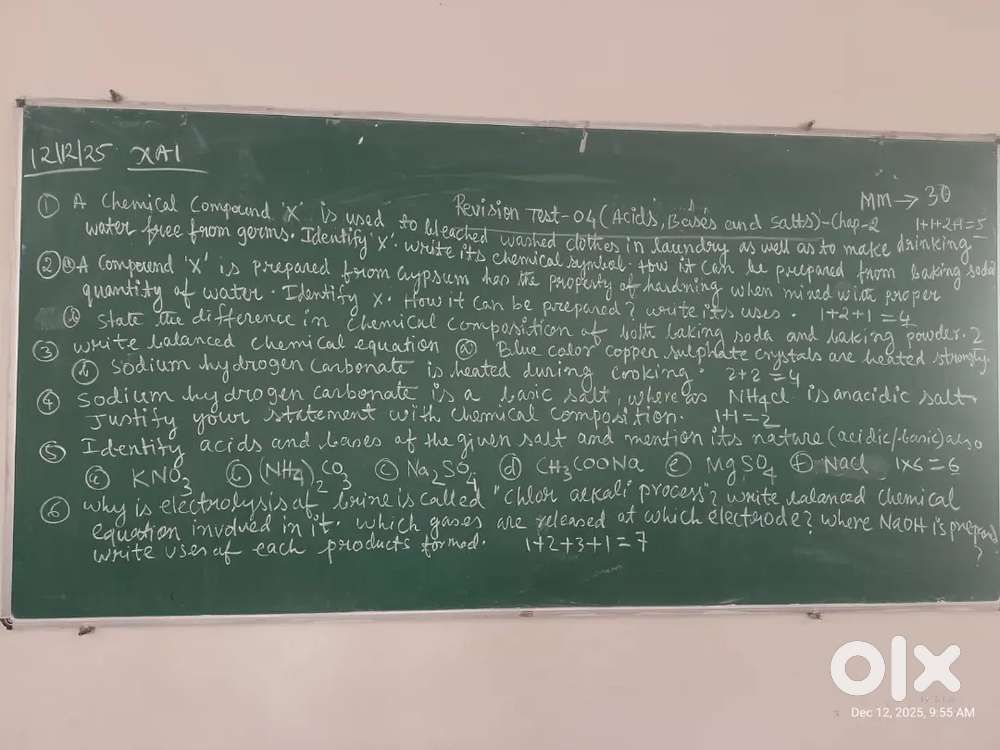 12/12/25 XA1
Revision Test-04 (Acids, Bases and Salts)-Chap-2
MM → 30
① A Chemical Compound 'X' is used to bleached washed clothes in laundry as well as to make drinking 1+1+2+1=5
water free from germs. Identify 'X'. Write its chemical symbol. How it can be prepared from baking soda
② ⓐ A Compound 'X' is prepared from Gypsum has the property of hardning when mixed with proper
quantity of water. Identify X. How it can be prepared? Write its uses. 1+2+1=4
ⓑ State the difference in chemical composition of both baking soda and baking powder. 2
③ Write balanced chemical equation ⓐ Blue color copper sulphate crystals are heated strongly.
ⓑ Sodium hydrogen Carbonate is heated during cooking. 2+2=4
④ Sodium hydrogen Carbonate is a basic salt, where as NH4Cl is anacidic salt.
Justify your statement with chemical composition. 1+1=2
⑤ Identify acids and bases of the given salt and mention its nature (acidic/basic) also
ⓐ KNO3 ⓑ (NH4)2CO3 ⓒ Na2SO4 ⓓ CH3COONa ⓔ MgSO4 ⓕ NaCl 1x6=6
⑥ Why is electrolysis of brine is called "Chlor alkali process"? Write balanced chemical
equation involved in it. Which gases are released at which electrode? Where NaOH is prepared
?
Write uses of each products formed. 1+2+3+1=7
olx
INDIA
Dec 12, 2025, 9:55 AM